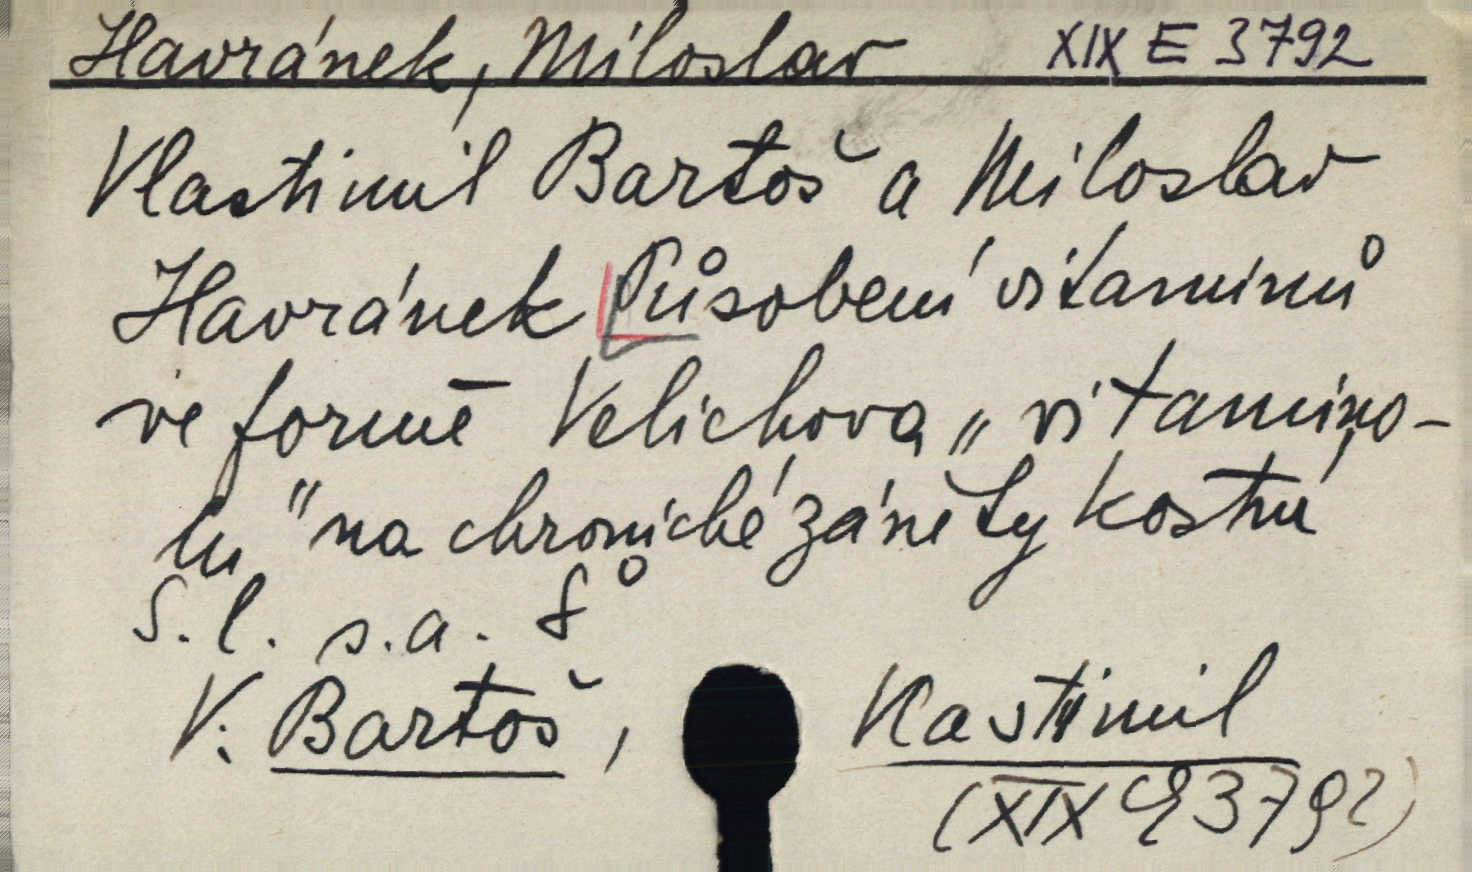 Havránek, Miloslav XIX E 3792
Vlastimil Bartoš a Miloslav
Havránek Působení vitaminů
ve formě Velichova „vitamino-
lu" na chronické záněty kostní
S. l. s. a. 8°
V: Bartoš, Vlastimil
(XIX E 3792)